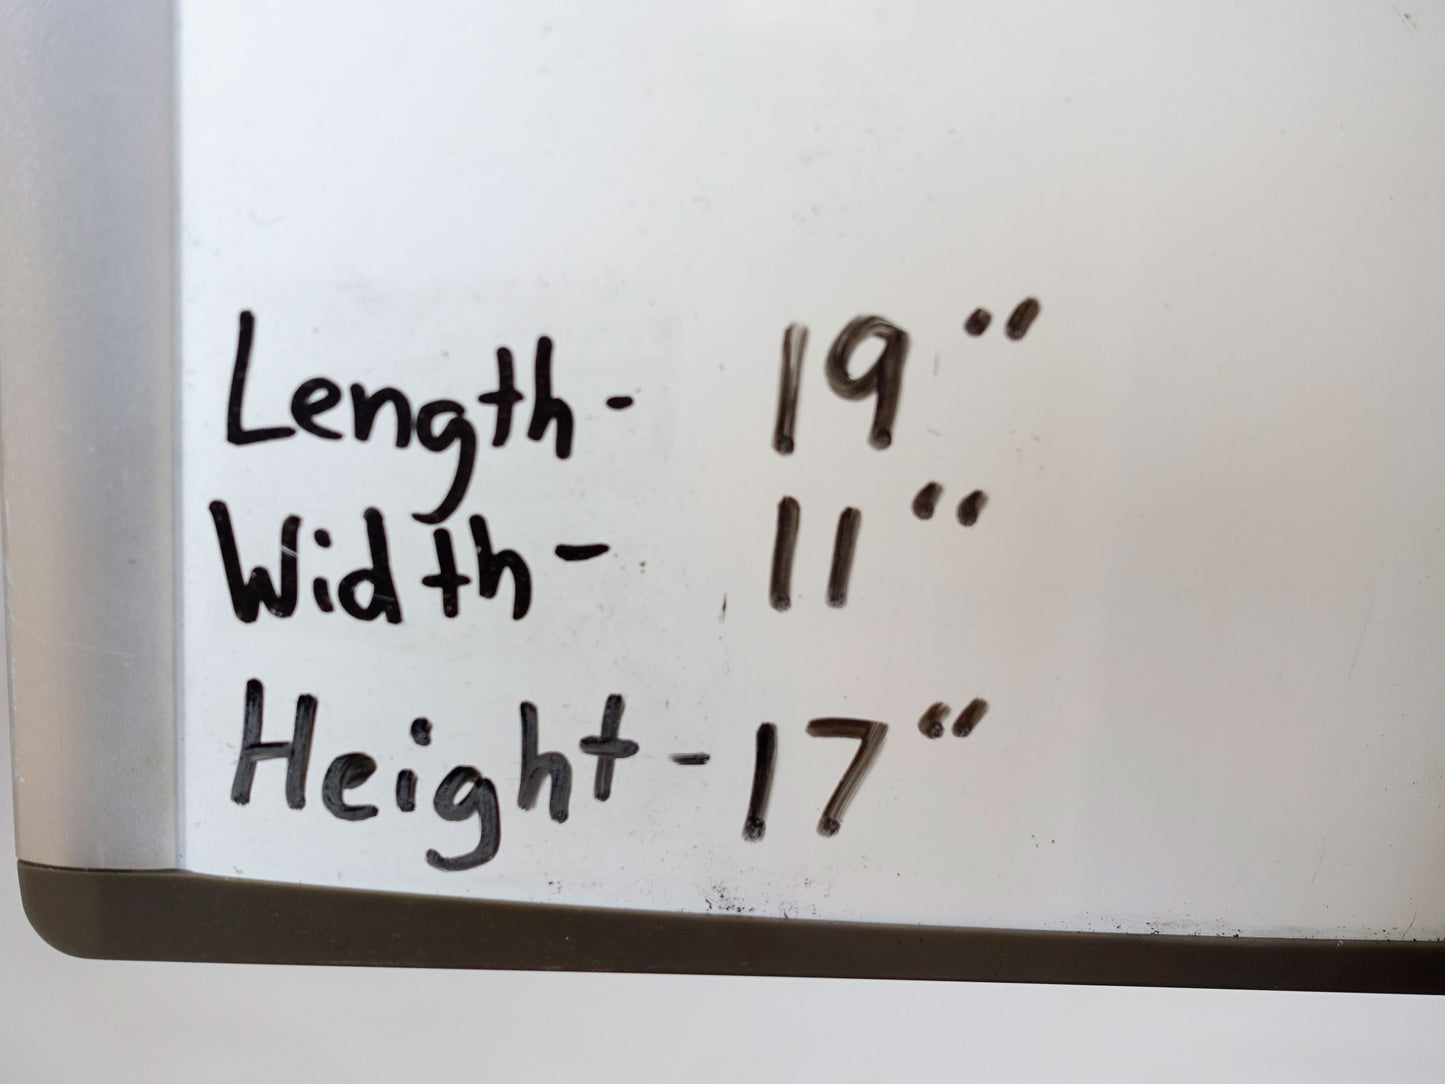 Length- 19"
Width- 11"
Height- 17"